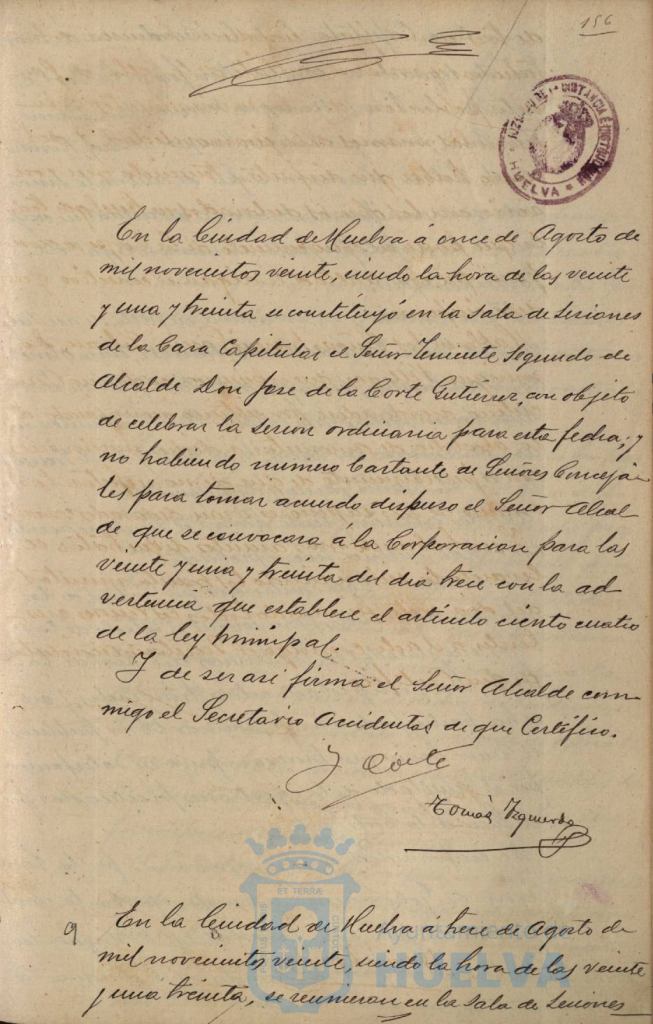 156
HUELVA
En la Ciudad de Huelva á once de Agosto de
mil novecientos veinte, siendo la hora de las veinte
y una y treinta se constituyó en la sala de Sesiones
de la Casa Capitular el Señor Teniente Segundo de
Alcalde Don José de la Corte Gutiérrez, con objeto
de celebrar la sesion ordinaria para esta fecha; y
no habiendo numero bastante de Señores Conceja-
les para tomar acuerdo dispuso el Señor Alcal
de que se convocara á la Corporacion para las
veinte y una y treinta del dia trece con la ad
vertencia que establece el artículo ciento cuatro
de la ley municipal.
Y de ser asi firma el Señor Alcalde con-
migo el Secretario Accidental de que Certifico.
J Corte
Tomás Izquierdo
9 En la Ciudad de Huelva á trece de Agosto de
mil novecientos veinte, siendo la hora de las veinte
y una treinta, se reunieron en la sala de Sesiones
ET TERRÆ
HUELVA